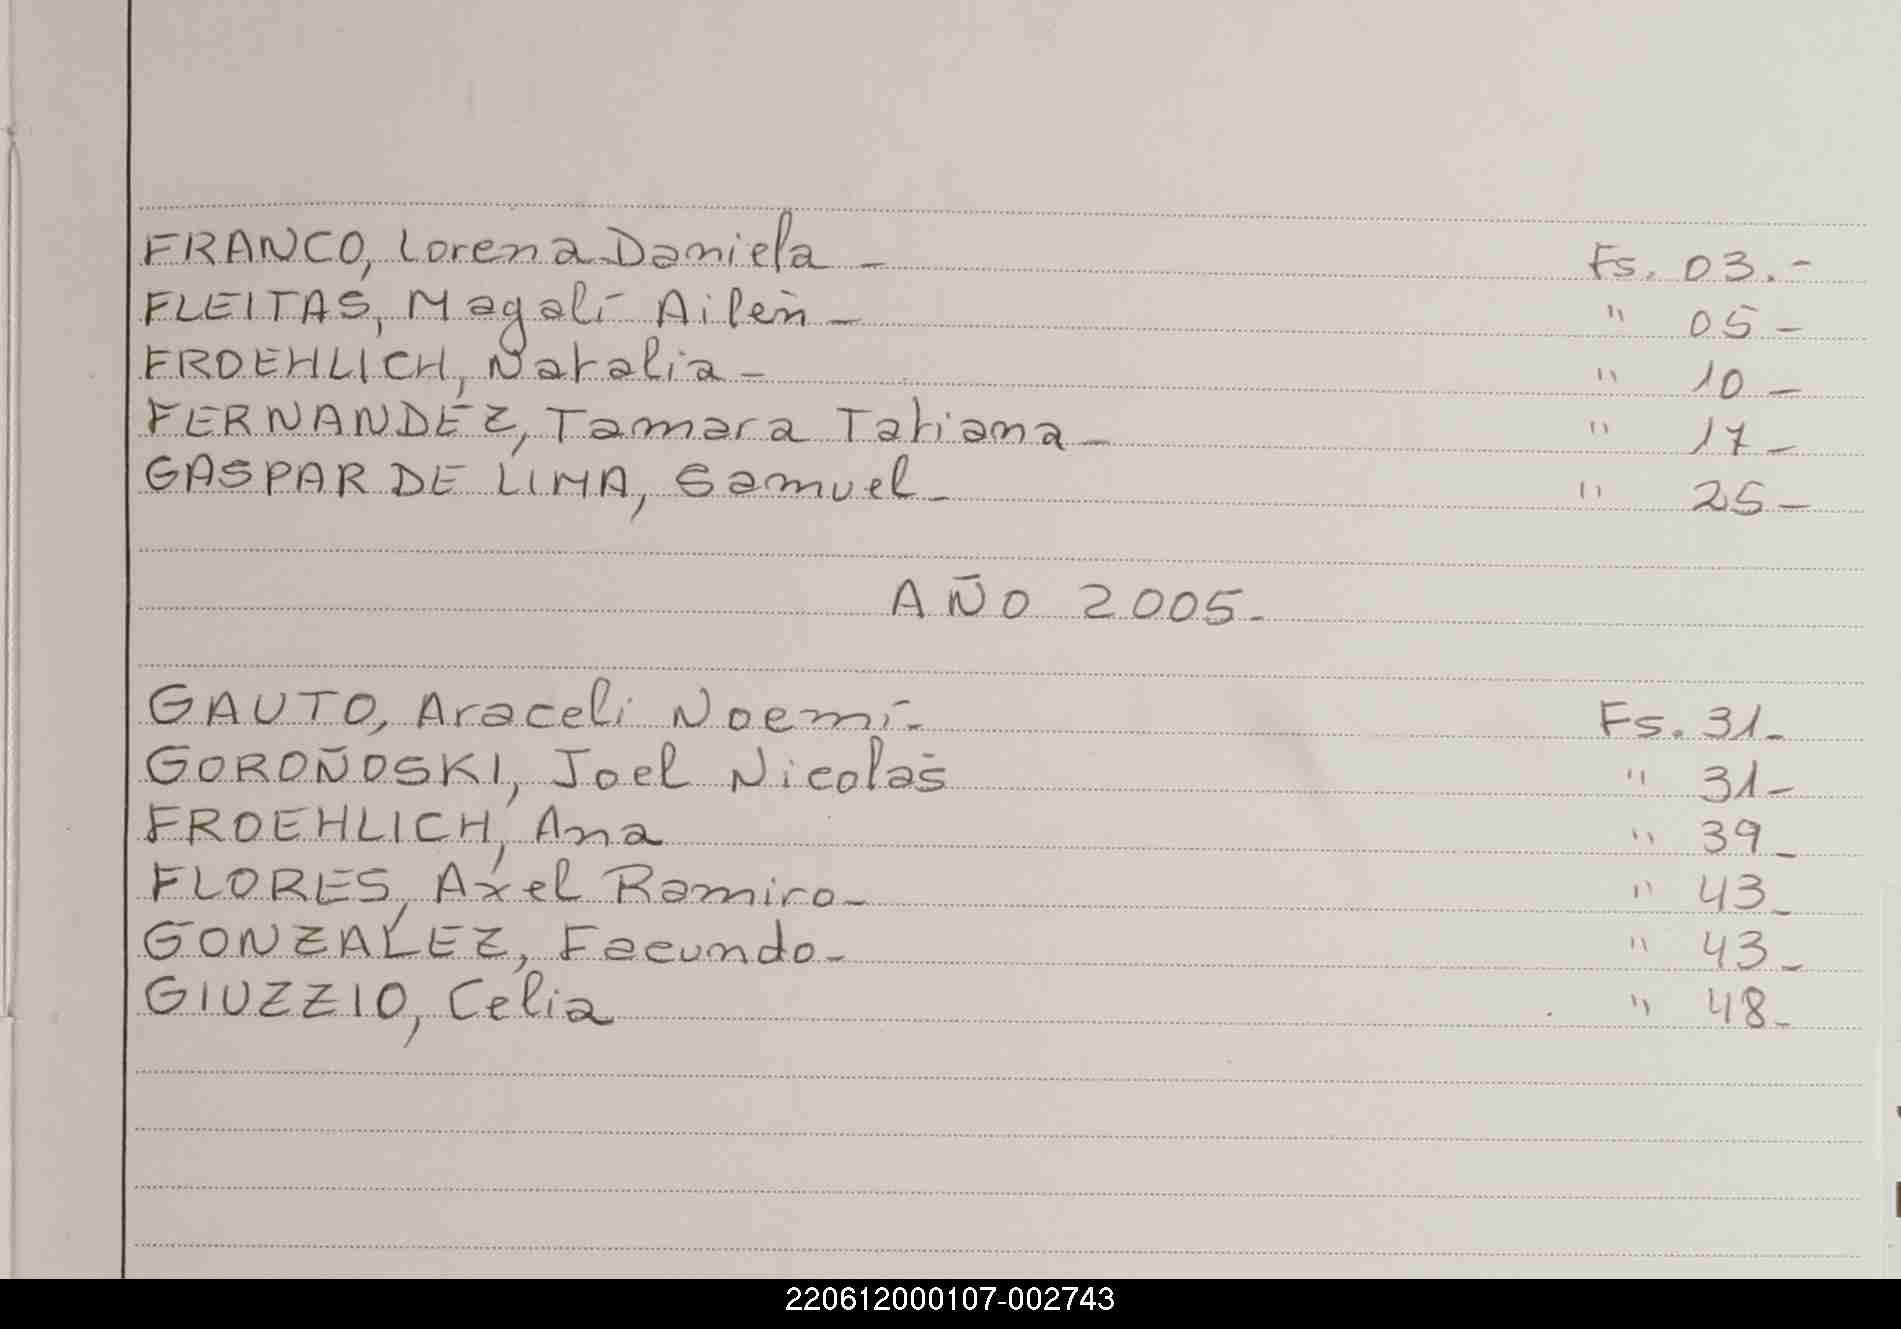 FRANCO, Lorena Daniela - Fs. 03.-
FLEITAS, Magalí Ailén - " 05 -
FROEHLICH, Natalia - " 10 -
FERNANDEZ, Tamara Tatiana - " 17 -
GASPAR DE LIMA, Samuel - " 25 -
AÑO 2005.-
GAUTO, Araceli Noemí.- Fs. 31.-
GOROÑOSKI, Joel Nicolás " 31 -
FROEHLICH, Ana " 39 -
FLORES, Axel Ramiro - " 43 -
GONZALEZ, Facundo - " 43 -
GIUZZIO, Celia " 48 -
220612000107-002743